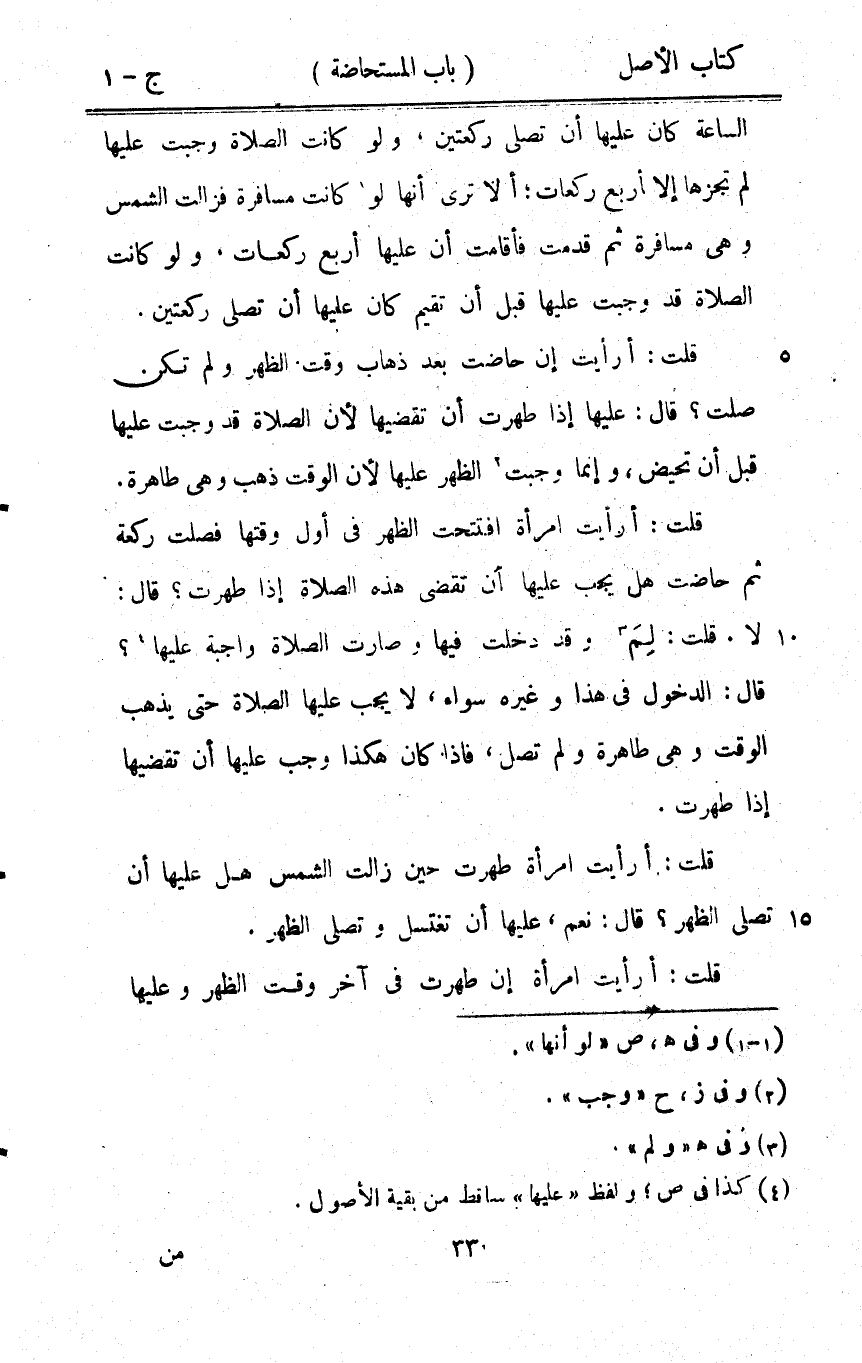 كتاب الأصل ( باب المستحاضة ) ج – ١
الساعة كان عليها أن تصلى ركعتين ، و لو كانت الصلاة وجبت عليها
لم تجزها إلا أربع ركعات ؛ أ لا ترى ١أنها لو١ كانت مسافرة فزالت الشمس
و هى مسافرة ثم قدمت فأقامت أن عليها أربع ركعات ، و لو كانت
الصلاة قد وجبت عليها قبل أن تقيم كان عليها أن تصلى ركعتين .
٥ قلت : أ رأيت إن حاضت بعد ذهاب وقت الظهر و لم تكن
صلت ؟ قال : عليها إذا طهرت أن تقضيها لأن الصلاة قد وجبت عليها
قبل أن تحيض ، و إنما وجبت٢ الظهر عليها لأن الوقت ذهب و هى طاهرة .
قلت : أ رأيت امرأة افتتحت الظهر فى أول وقتها فصلت ركعة
ثم حاضت هل يجب عليها أن تقضى هذه الصلاة إذا طهرت ؟ قال :
١٠ لا . قلت : لِمَ٣ و قد دخلت فيها و صارت الصلاة واجبة عليها٤ ؟
قال : الدخول فى هذا و غيره سواء ، لا يجب عليها الصلاة حتى يذهب
الوقت و هى طاهرة و لم تصل ، فاذا كان هكذا وجب عليها أن تقضيها
إذا طهرت .
قلت : أ رأيت امرأة طهرت حين زالت الشمس هل عليها أن
١٥ تصلى الظهر ؟ قال : نعم ، عليها أن تغتسل و تصلى الظهر .
قلت : أ رأيت امرأة إن طهرت فى آخر وقت الظهر و عليها
(١–١) و فى ه ، ص « لو أنها » .
(٢) و فى ز ، ح « وجب » .
(٣) و فى ه « و لم » .
(٤) كذا فى ص ؛ و لفظ « عليها » ساقط من بقية الأصول .
٣٣٠ من